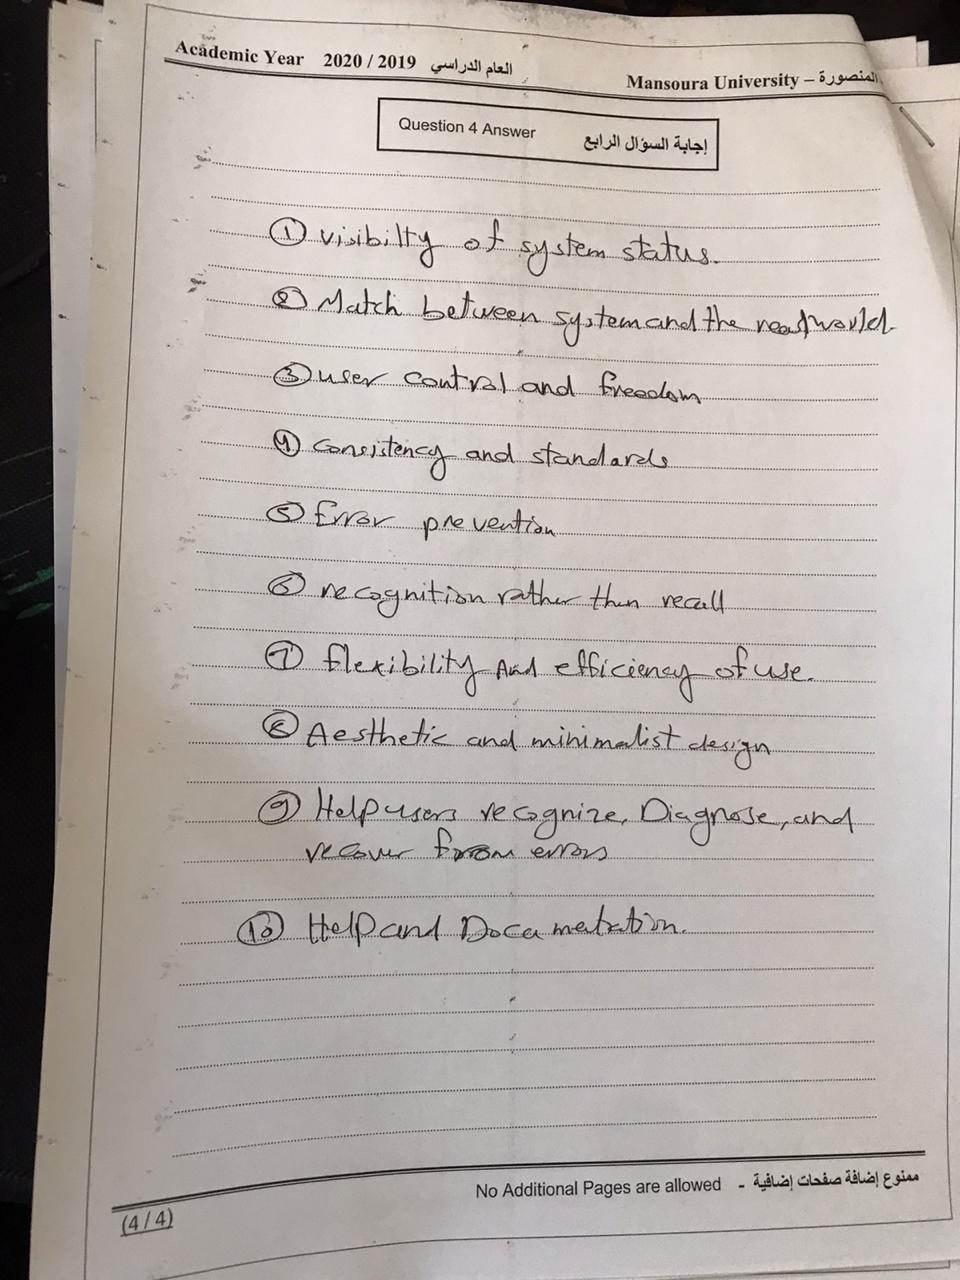 Academic Year 2020 / 2019 العام الدراسي
Mansoura University – المنصورة
Question 4 Answer إجابة السؤال الرابع
① visibilty of system status.
② Match between system and the real world.
③ user control and freedom
④ consistency and standards
⑤ Error prevention
⑥ recognition rather then recall
⑦ flexibility And efficiency of use.
⑧ Aesthetic and minimalist design
⑨ Help users recognize, Diagnose, and
recover from errors
⑩ Help and Documentation.
No Additional Pages are allowed - ممنوع إضافة صفحات إضافية
(4 / 4)